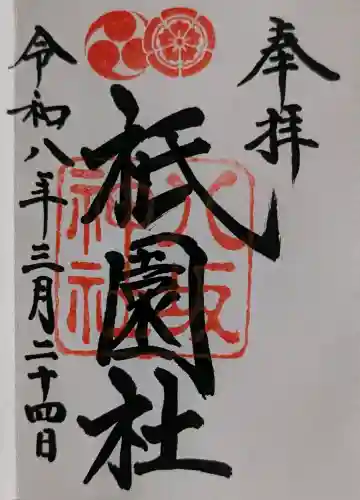 奉拝
八坂神社
祇園社
令和八年三月二十四日